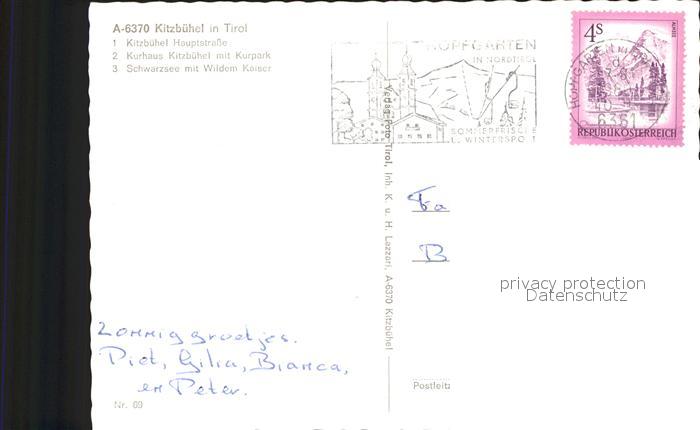 A-6370 Kitzbühel in Tirol
1 Kitzbühel Hauptstraße
2 Kurhaus Kitzbühel mit Kurpark
3 Schwarzsee mit Wildem Kaiser
HOPFGARTEN
IN NORDTIROL
SOMMERFRISCHE
U. WINTERSPORT
4S
ALMSEE
6361
REPUBLIK ÖSTERREICH
Verlag Foto Tirol, Inh. K. u. H. Lazzari, A-6370 Kitzbühel
Fa
B
privacy protection
Datenschutz
Zonnig groetjes.
Piet, Gilia, Bianca,
en Peter.
Postleitz
Nr. 69